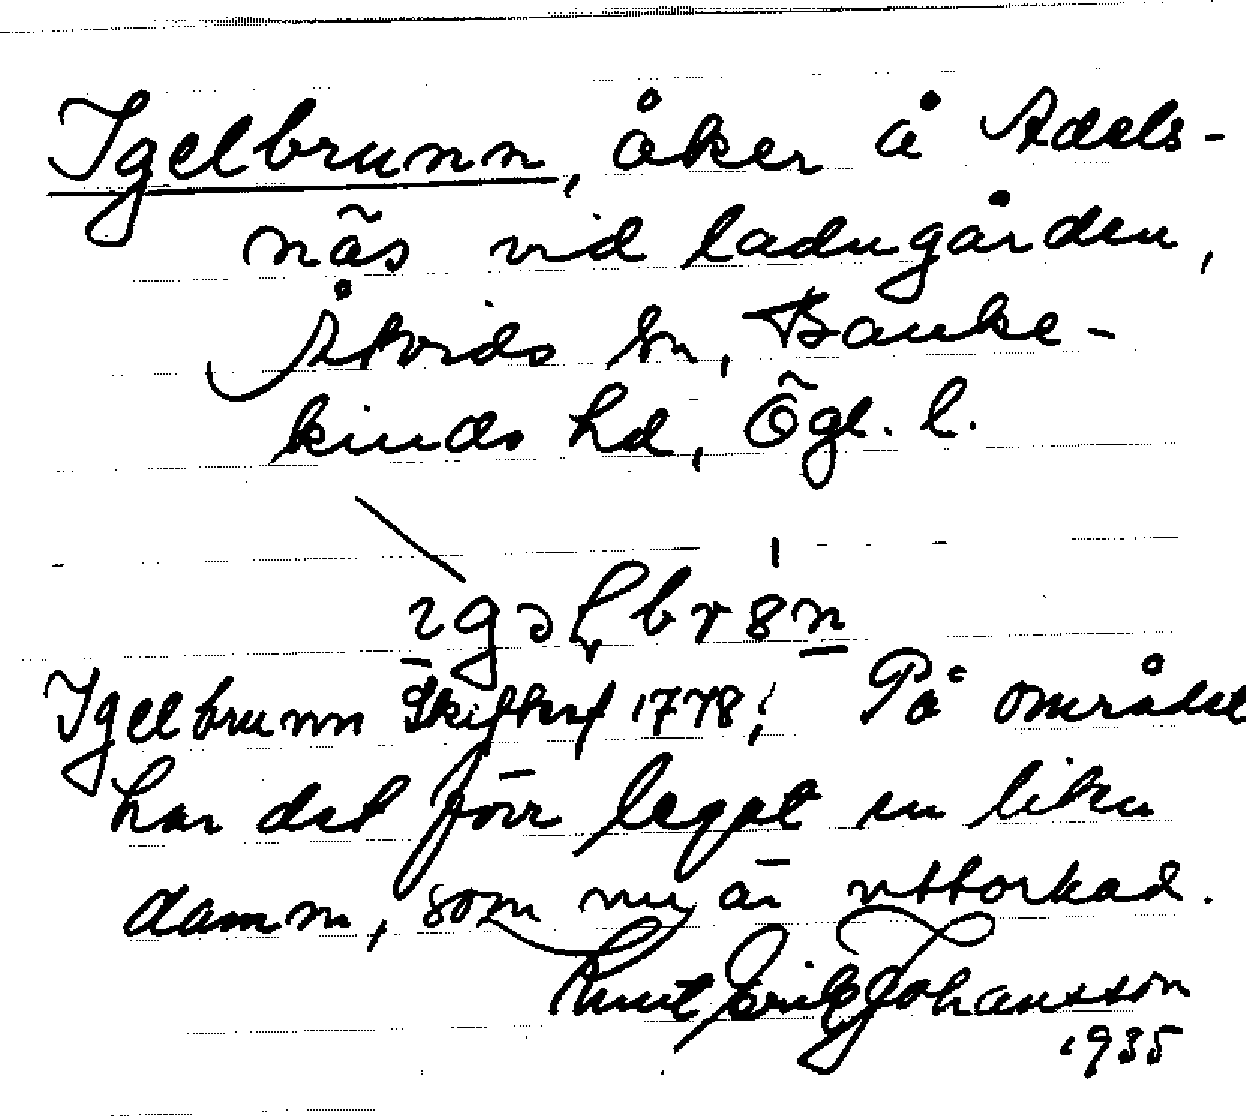 Igelbrunn, åker å Adels-
näs vid ladugården,
Åtvids sn, Banke-
kinds hd, Ögl. l.
Igelbrunn 1778; På området
har det förr legat en liten
damm, som nu är uttorkad.
Knut Erik Johansson
1935